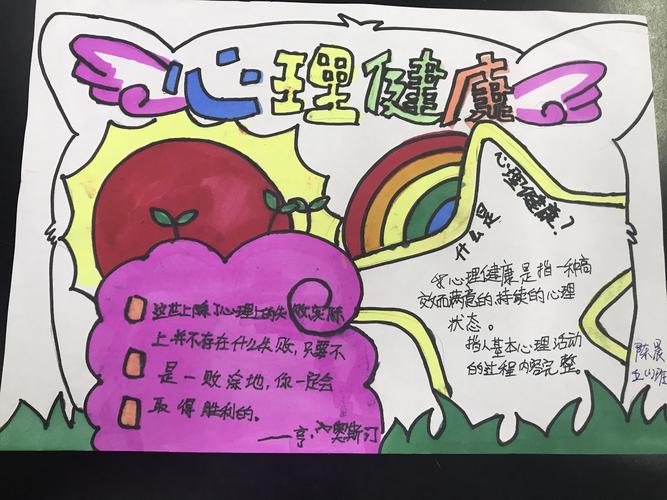 心理健康
什么是
心理健康?
心理健康是指一种高
效而满意的、持续的心理
状态。
指人基本心理活动
的过程内容完整。
陈晨
五(1)班
这世上除了心理上的失败,实际
上并不存在什么失败,只要不
是一败涂地,你一定会
取得胜利的。
——亨·奥斯汀